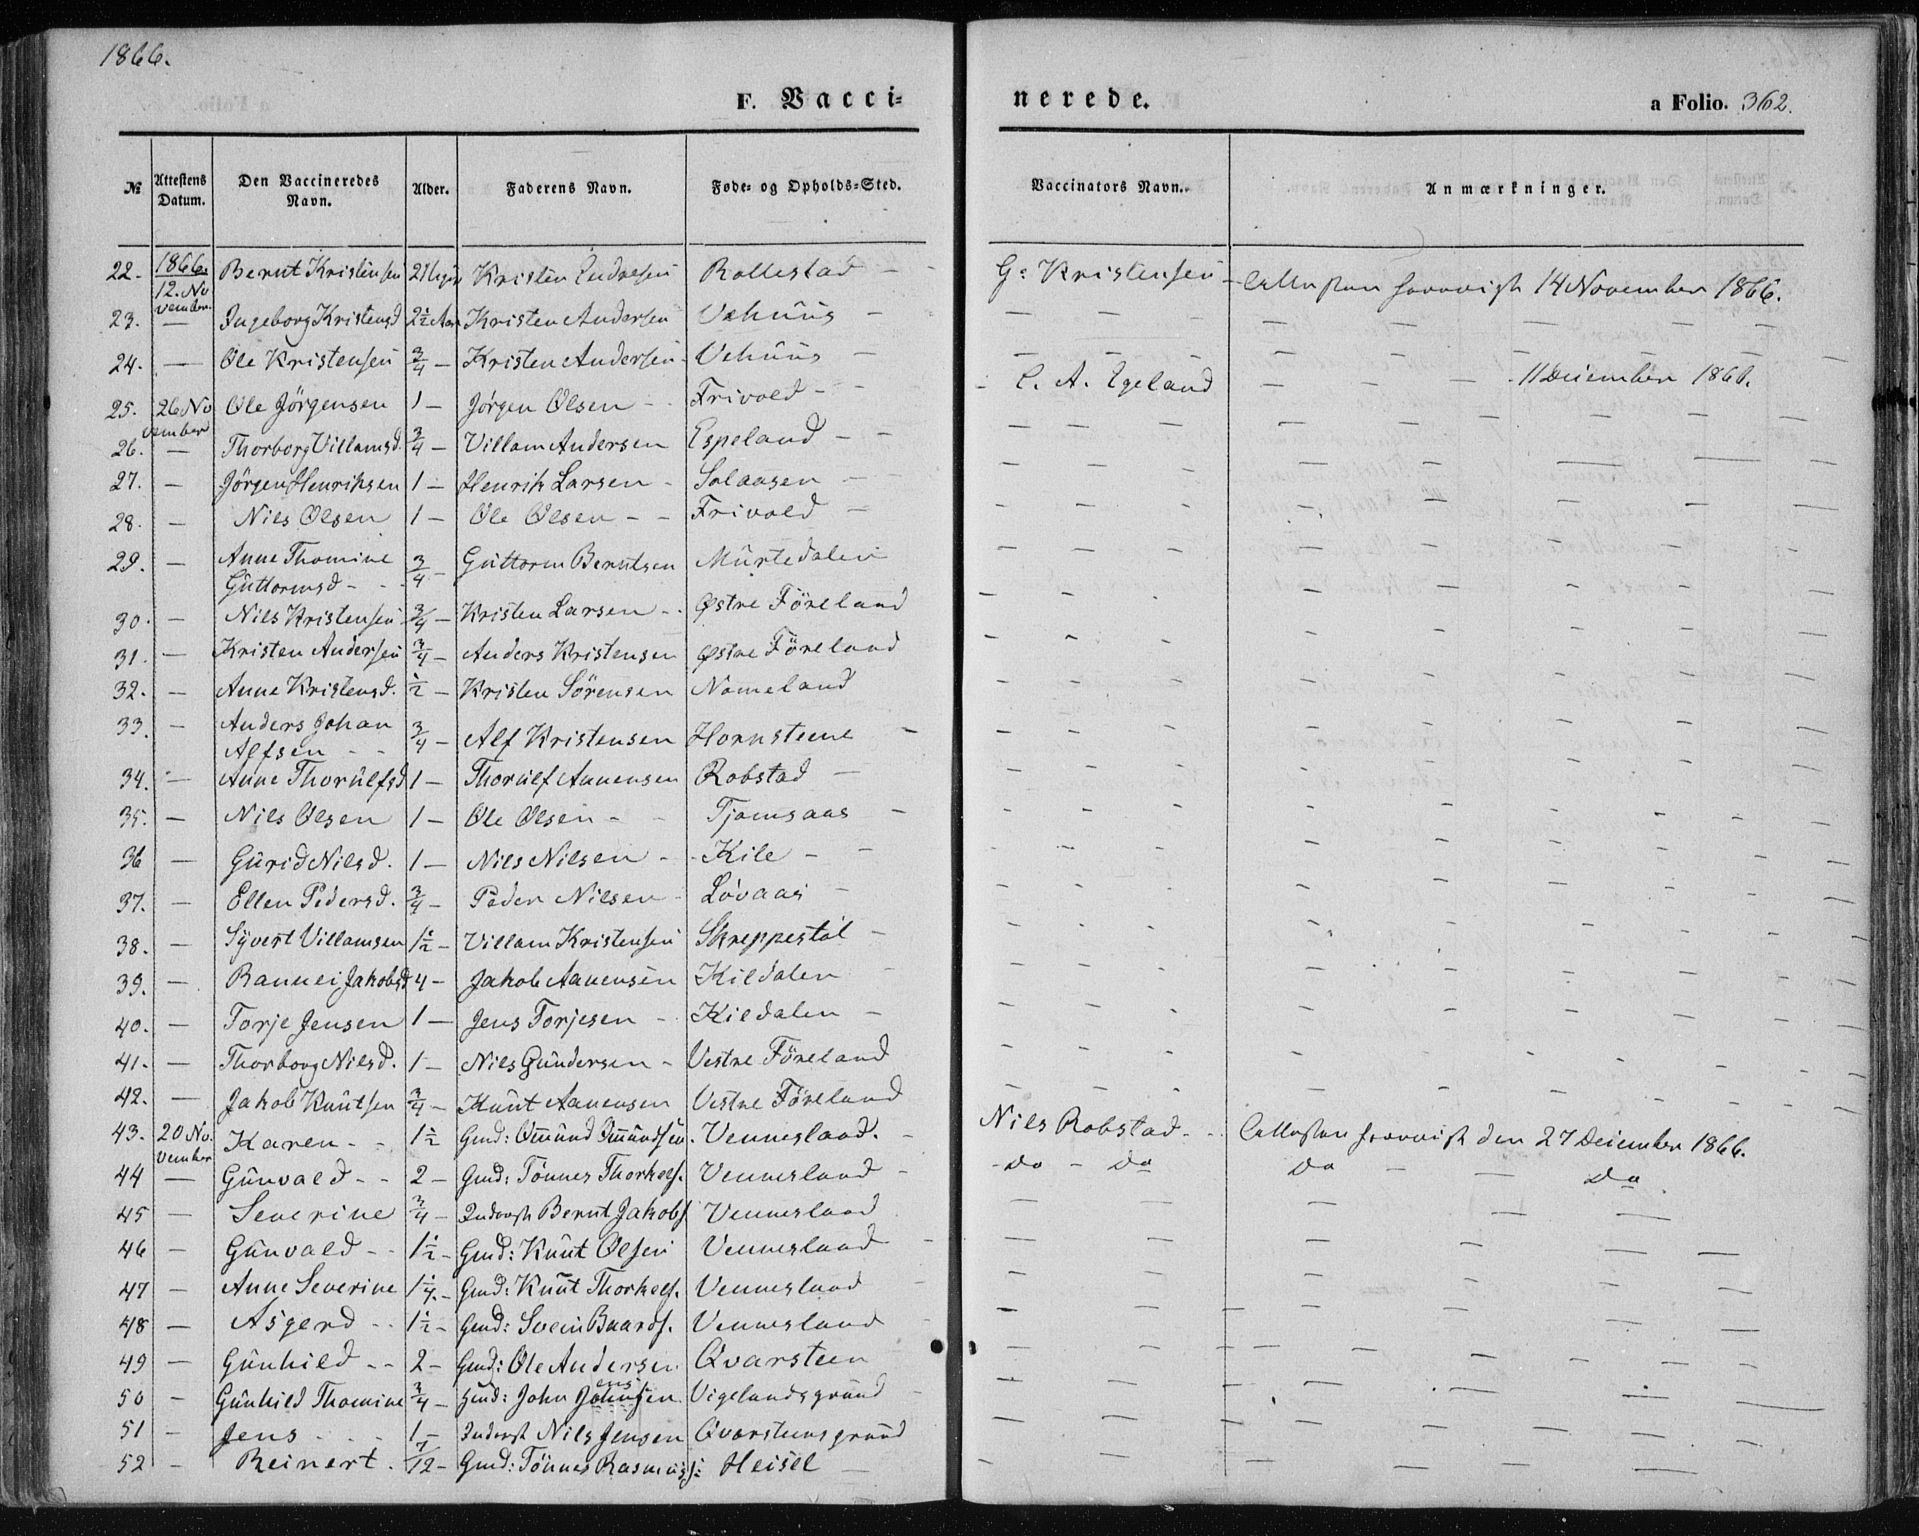 1866.
F. Vacci= nerede. a Folio. 362.
№ Attestens Datum. Den Vaccineredes Navn. Alder. Faderens Navn. Føde= og Opholds=Sted. Vaccinators Navn. Anmærkninger.
22. 1866. 12. November Bernt Kristensen Kristen Rollestad - - G: Kristensen 14 November 1866.
23. — Ingeborg Kristensd 2½ Aar Kristen Andersen Vehuus -
24. — Ole Kristensen ¾ — Kristen Andersen Vehuus -
25. 26 November Ole Jörgensen 1 — Jörgen Olsen - - Frivold - - C. A. Egeland - - - 11 December 1866.
26. — Thorborg Villamsd. ¾ — Villam Andersen Espeland - -
27. — Jörgen Henriksen 1 — Henrik Larsen - Solaasen -
28. — Nils Olsen 1 — Ole Olsen - - Frivold -
29. — Anne Thomine Guttormsd - - ¾ — Guttorm Berntsen Murtedalen
30. — Nils Kristensen ¾ — Kristen Larsen - - Østre Föreland
31. — Kristen Andersen ¾ — Anders Kristensen Østre Föreland
32. — Anne Kristensd. ½ — Kristen Sörensen Nomeland
33. — Anders Johan Alfsen - - ¾ — Alf Kristensen Hornsteene -
34. — Anne Thorulfsd 1 — Thorulf Aanensen Robstad -
35. — Nils Olsen 1 — Ole Olsen - - Tjomsaas -
36 — Gurid Nilsd. 1 — Nils Nilsen - - Kile - -
37. — Ellen Pedersd. ¾ — Peder Nilsen - Lövaas -
38. — Syvert Villamsen 1½ — Villam Kristensen Skreppestöl -
39. — Rannei Jakobsd 4 — Jakob Aanensen Kildalen -
40. — Torje Jensen 1 — Jens Torjesen - Kildalen -
41. — Thorborg Nilsd. 1 — Nils Gundersen - Vestre Föreland
42. — Jakob Knutsen ¾ — Knut Aanensen Vestre Föreland
43. 20 November Karen - - 1½ Gmd: Omund Omundsen. Vennesland. - Nils Robstad - - den 27 December 1866.
44 — Gunvald - - 2 — Gmd: Tönnes Thorkels. Vennesland - - do - do do - — do
45 — Severine ¾ — Bernt Jakobs Vennesland
46 — Gunvald - - 1½ — Gmd: Knut Olsen Vennesland -
47 — Anne Severine 1¼ — Gmd: Knut Thorkels. Vennesland
48 — Asgerd - - 1½ — Gmd: Svein Baards. Vennesland -
49 — Gunhild - - 2 — Gmd: Ole Andersen Qvarsteen
50 — Gunhild Thomine ¾ — Gmd: John Vigelandsgrund -
51 — Jens - - - 1 — Nils Jensen Qvarsteensgrund
52 — Reinert - 7/12 — Gmd: Tönnes Rasmuss: Heisel